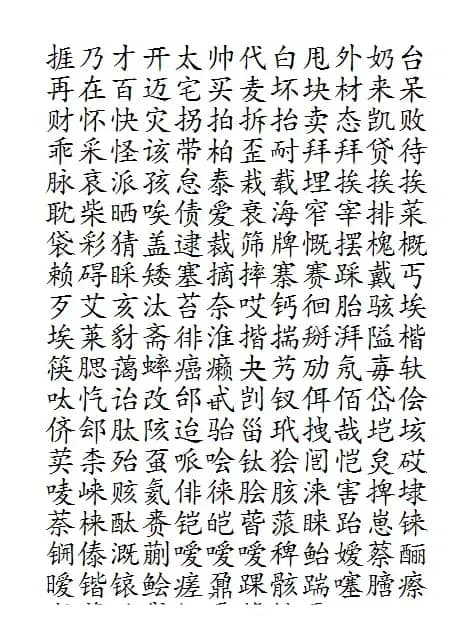 捱乃才开太帅代白甩外奶台
再在百迈宅买麦坏块材来呆
财怀快灾拐拍拆抬卖态凯败
乖采怪该带柏歪耐拜拜贷待
脉哀派孩怠泰栽载埋挨挨挨
耽柴晒唉债爱衰海窄宰排菜
袋彩猜盖逮裁筛牌慨摆槐概
赖碍睬矮塞摘摔寨赛踩戴丐
歹艾亥汰苔奈哎钙徊胎骇埃
埃莱豺斋徘淮揩揣掰湃隘楷
筷腮蔼蟀癌癞夬艿劢氖毐轪
呔忾诒改邰甙剀钗佴佰岱侩
侪郐肽陔迨骀甾玳拽哉垲垓
荚柰殆虿哌哙钛狯闿恺炱砹
唛崃赅氦俳徕脍胲涞害捭埭
萘梾酞赉铠皑蓓蒎睐跆崽铼
锎傣溉蒯嗳嗳嗳稗鲐嫒蔡酾
暧锴镱鲙瘥鼐踝骸踹噻膪瘵